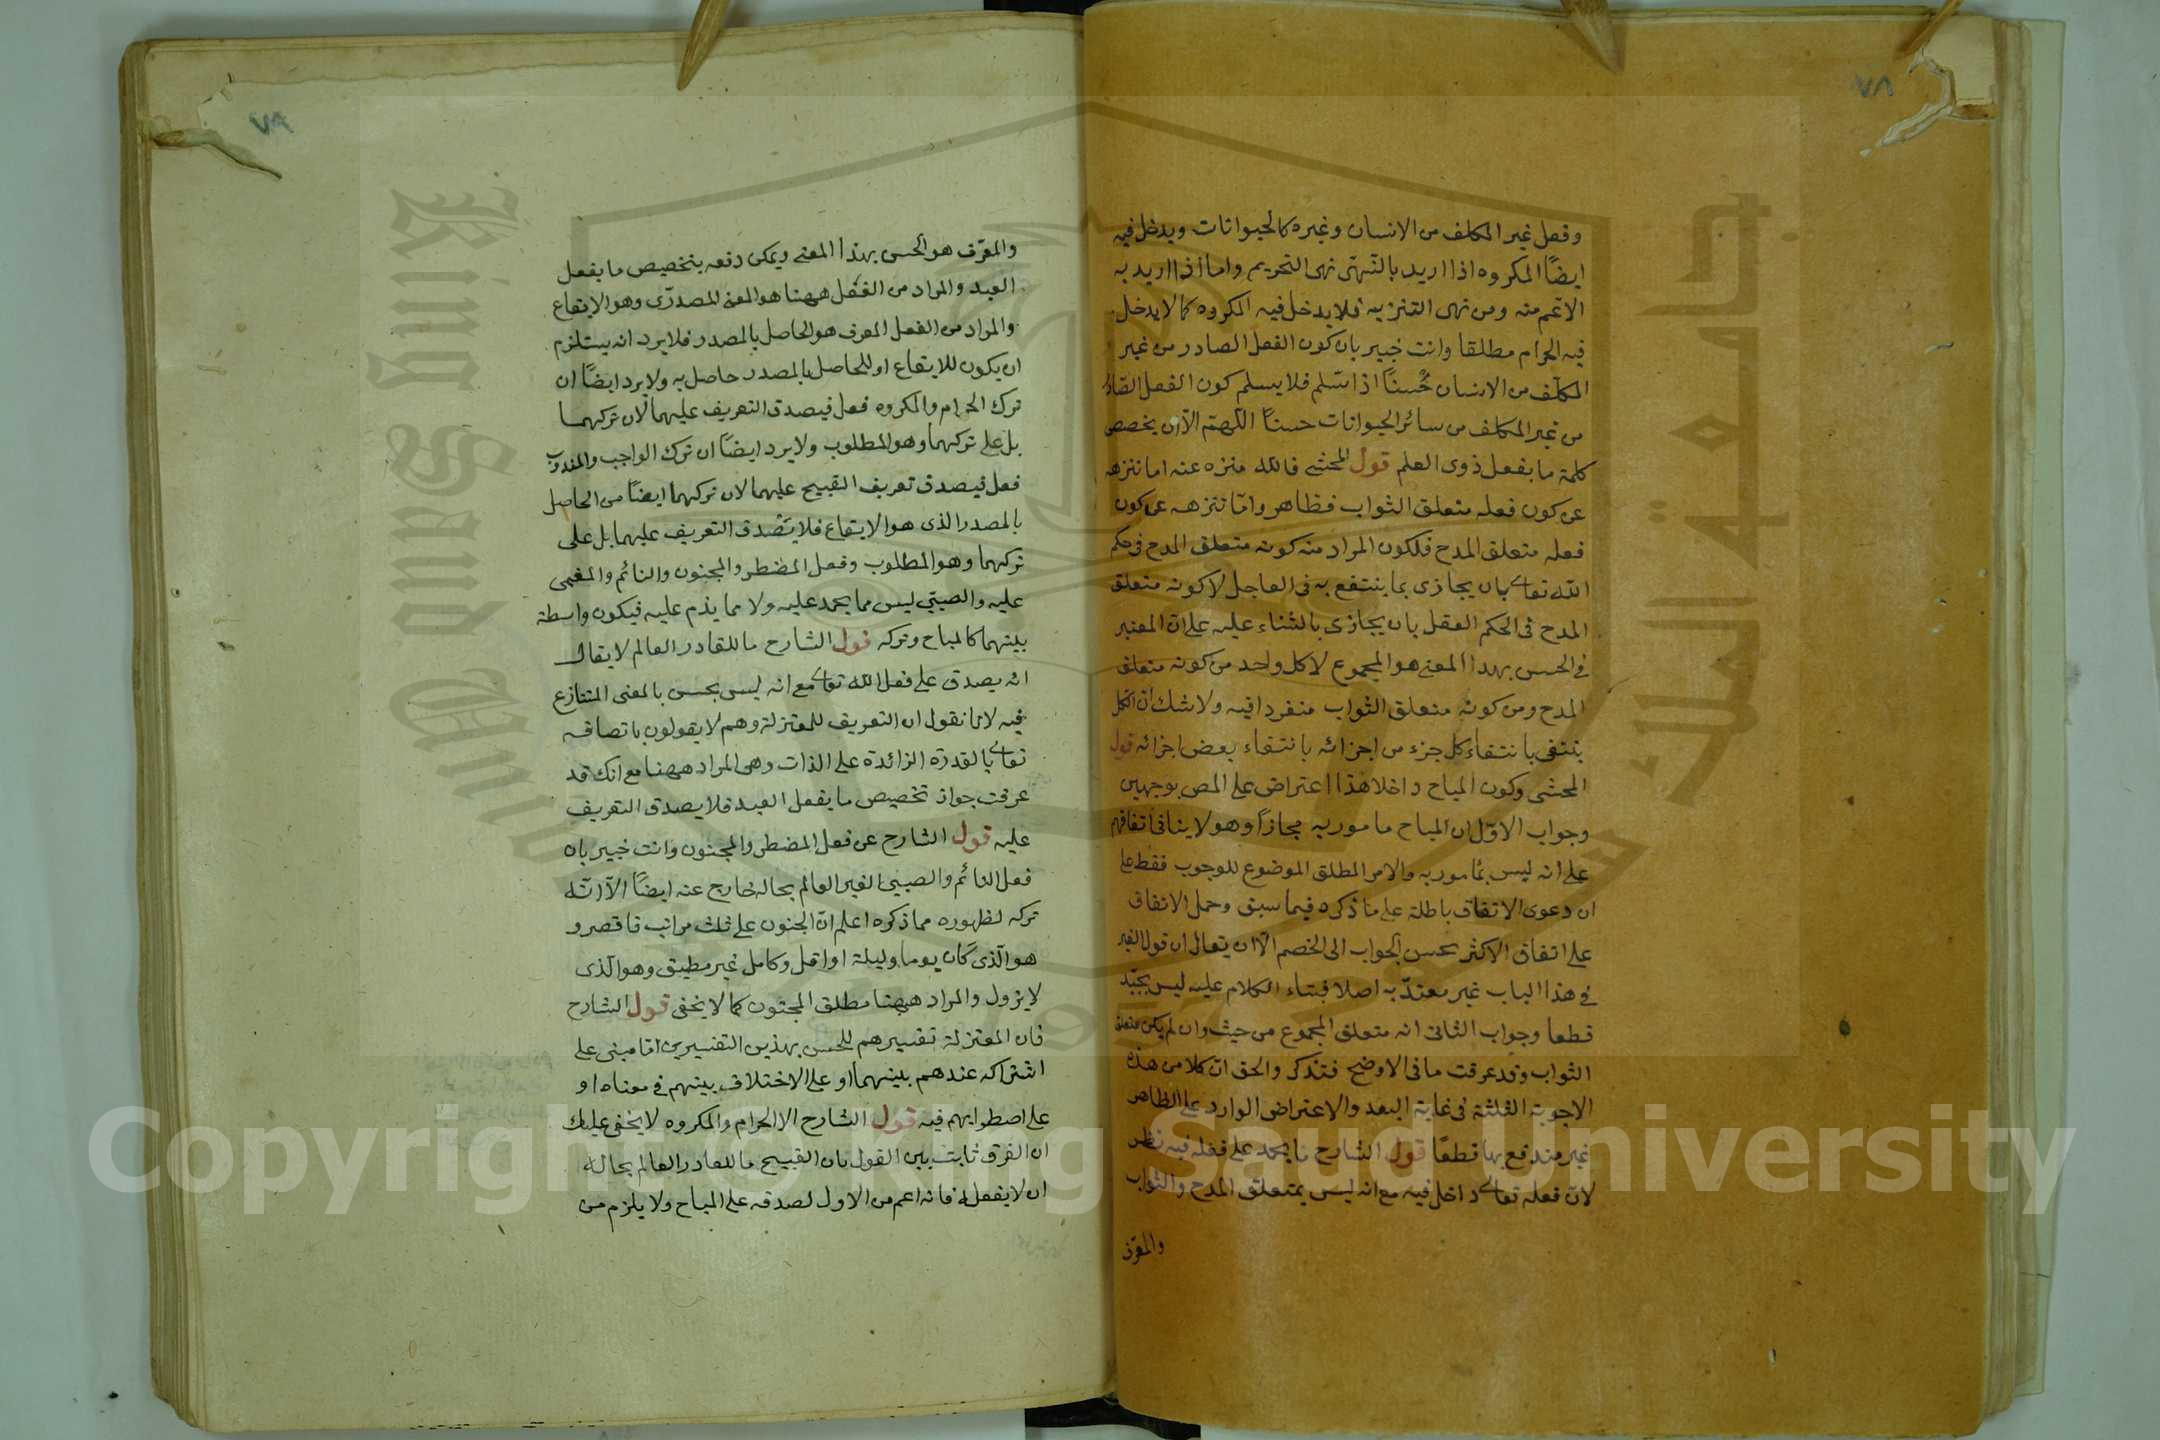 ٧٨
وفعل غير المكلف من الانسان وغيره كالحيوانات ويدخل فيه
ايضًا المكروه اذا اريد بالنهى نهى التحريم واما اذا اريد به
الاعم منه ومن نهى التنزيه فلا يدخل فيه المكروه كما لا يدخل
فيه الحرام مطلقا وانت خبير بان كون الفعل الصادر من غير
المكلف من الانسان حُسنًا اذا سلم فلا يسلم كون الفعل الصادر
من غير المكلف من سائر الحيوانات حسنًا اللّهم الّا ان يخصص
كلمة ما بفعل ذوى العلم قول المحشى فالله منزه عنه اما تنزهه
عن كون فعله متعلق الثواب فظاهر وامّا تنزهه عن كون
فعله متعلق المدح فلكون المراد منه كونه متعلق المدح فى حكم
اللّه تعالى بان يجازى بما ينتفع به فى العاجل لا كونه متعلق
المدح فى الحكم العقل بان يجازى بالثناء عليه على ان المعتبر
فى الحسن بهذا المعنى هو المجموع لا كل واحد من كونه متعلق
المدح ومن كونه متعلق الثواب منفردا فيه ولا شك ان الكل
ينتفى بانتفاء كل جزء من اجزائه بانتفاء بعض اجزائه قول
المحشى وكون المباح داخلا هذا اعتراض على المص بوجهين
وجواب الاوّل ان المباح مامور به مجازًا وهو لا ينافى اتفاقهم
على انه ليس بمامور به والامر المطلق الموضوع للوجوب فقط على
ان دعوى الاتفاق باطلة على ما ذكره فيما سبق وحمل الاتفاق
على اتفاق الاكثر يحسن الجواب الى الخصم الّا ان يقال ان قول الغير
فى هذا الباب غير معتدّ به اصلا فبناء الكلام عليه ليس بجيّد
قطعا وجواب الثانى انه متعلق المجموع من حيث وان لم يكن متعلق
الثواب وقد عرفت ما فى الاوضح فتذكر والحق ان كلا من هذه
الاجوبة الثلثة فى غاية البعد والاعتراض الوارد على الظاهر
غير مندفع بها قطعًا قول الشارح ما يحمد على فعله فيه نظر
لان فعله تعالى داخل فيه مع انه ليس بمتعلق المدح والثواب
والمعرّف
٧٩
والمعرّف هو الحسن بهذا المعنى ويمكن دفعه بتخصيص ما بفعل
العبد والمراد من الفعل ههنا هو المعنى المصدرّى وهو الايقاع
والمراد من الفعل المعرف هو الحاصل بالمصدر فلا يرد انه يستلزم
ان يكون للايقاع او للحاصل بالمصدر حاصل به ولا يرد ايضًا ان
ترك الحرام والمكروه فعل فيصدق التعريف عليهما لان تركهما
بل على تركهما وهو المطلوب ولا يرد ايضًا ان ترك الواجب والمندوب
فعل فيصدق تعريف القبيح عليهما لان تركهما ايضًا من الحاصل
بالمصدر الذى هو الايقاع فلا يصدق التعريف عليهما بل على
تركهما وهو المطلوب وفعل المضطر والمجنون والنائم والمغمى
عليه والصبىّ ليس مما يحمد عليه ولا مما يذم عليه فيكون واسطة
بينهما كالمباح وتركه قول الشارح ما للقادر العالم لا يقال
انه يصدق على فعل الله تعالى مع انه ليس بحسن بالمعنى المتنازع
فيه لانا نقول ان التعريف للمعتزلة وهم لا يقولون باتصافه
تعالى بالقدرة الزائدة على الذات وهى المراد ههنا مع انك قد
عرفت جواز تخصيص ما بفعل العبد فلا يصدق التعريف
عليه قول الشارح عن فعل المضطر والمجنون وانت خبير بان
فعل النائم والصبى الغير العالم بحاله خارج عنه ايضًا الّا انّه
تركه لظهوره مما ذكره اعلم ان الجنون على ثلث مراتب ناقص و
هو الّذى كان يوما وليلة او اقل وكامل غير مطبق وهو الّذى
لا يزول والمراد ههنا مطلق المجنون كما لا يخفى قول الشارح
فان المعتزلة تفسيرهم للحسن بهذين التفسيرين اما مبنى على
اشتراكه عندهم بينهما او على الاختلاف بينهم فى معناه او
على اضطرابهم فيه قول الشارح الا الحرام والمكروه لا يخفى عليك
ان الفرق ثابت بين القول بان القبيح ما للقادر العالم بحاله
ان لا يفعله فانه اعم من الاول لصدقه على المباح ولا يلزم من
King Saud University
جامعة الملك سعود
Copyright © King Saud University